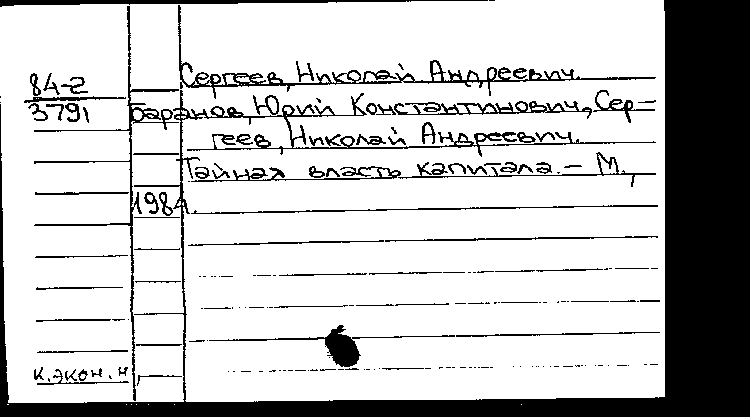 Сергеев, Николай Андреевич.
84-2
3791
Баранов, Юрий Константинович, Сер-
геев, Николай Андреевич.
Тайная власть капитала. - М.,
1984.
к.экон.н.